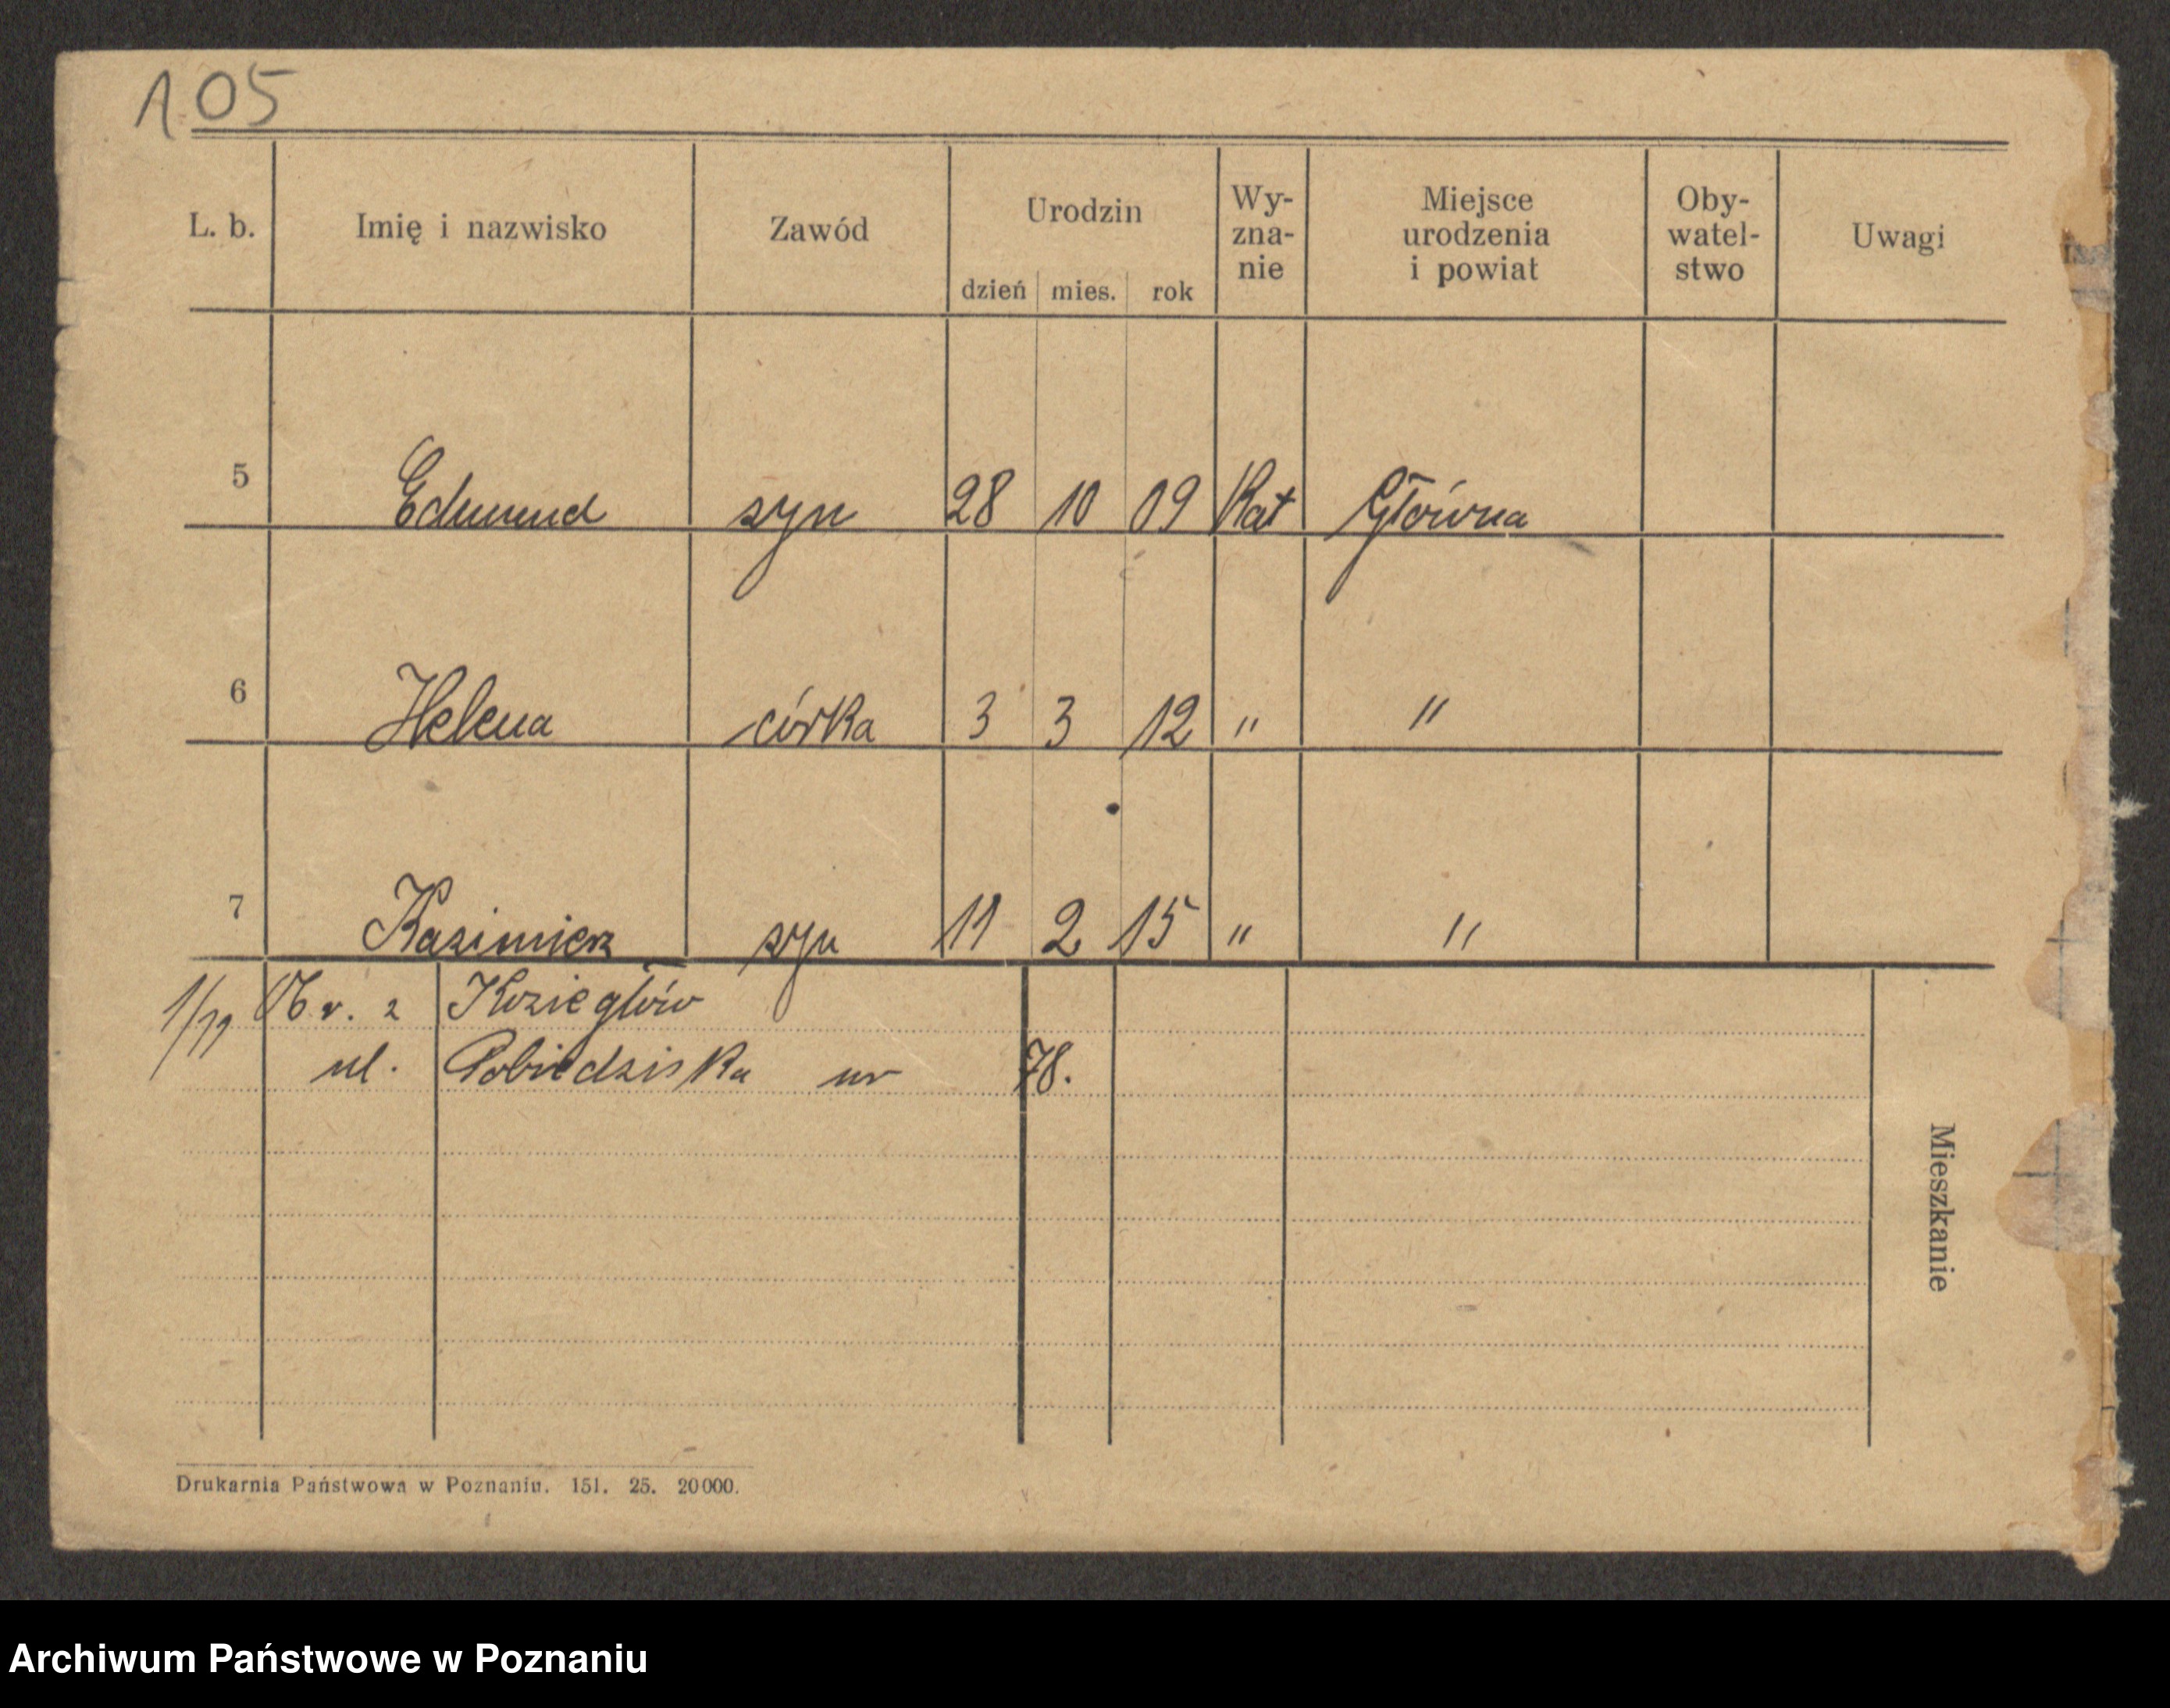 105
L. b. Imię i nazwisko Zawód Urodzin Wy-
zna-
nie Miejsce
urodzenia
i powiat Oby-
watel-
stwo Uwagi
dzień mies. rok
5 Edmund syn 28 10 09 Kat Główna
6 Helena córka 3 3 12 " "
7 Kazimierz syn 11 2 15 " "
r. 2 Koziegłów
ul. Pobiedziska nr 78.
Mieszkanie
Drukarnia Państwowa w Poznaniu. 151. 25. 20000.
Archiwum Państwowe w Poznaniu